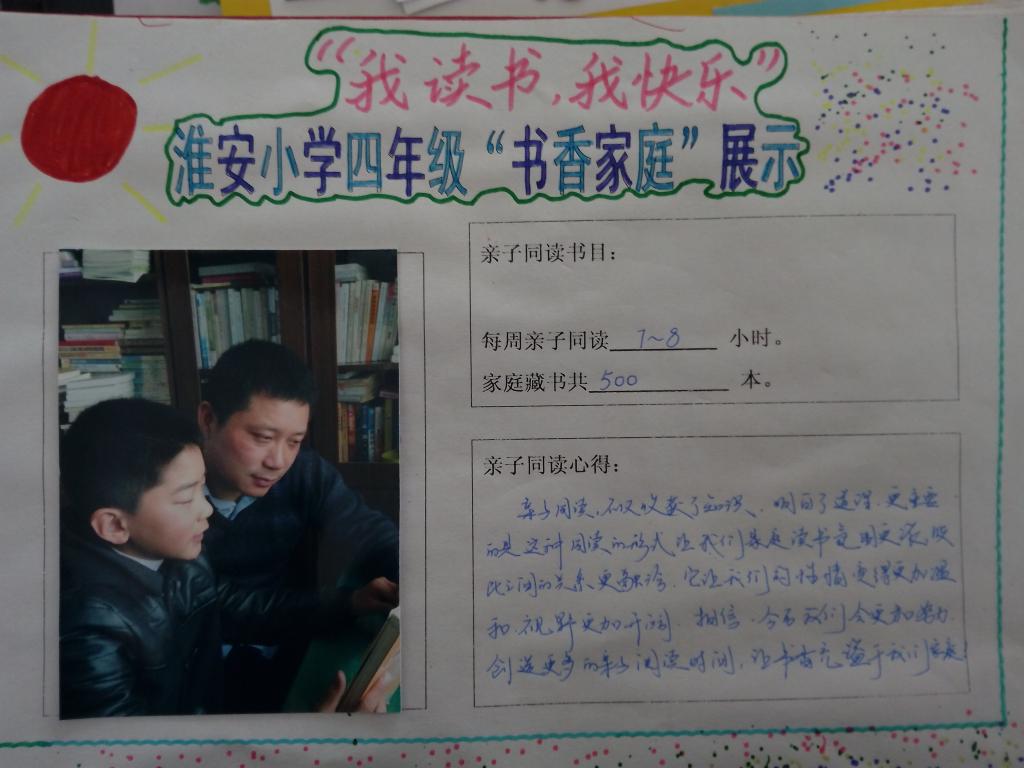 “我读书,我快乐”
淮安小学四年级“书香家庭”展示
亲子同读书目：
每周亲子同读 7~8 小时。
家庭藏书共 500 本。
亲子同读心得：
亲子同读,不仅收获了知识、明白了道理.更主要
的是这种同读的形式让我们家庭读书氛围更浓,彼
此之间的关系更融洽.它让我们的性情变得更加温
和.视野更加开阔.相信.今后我们会更加努力.
创造更多的亲子阅读时间,让书香充溢于我们家庭